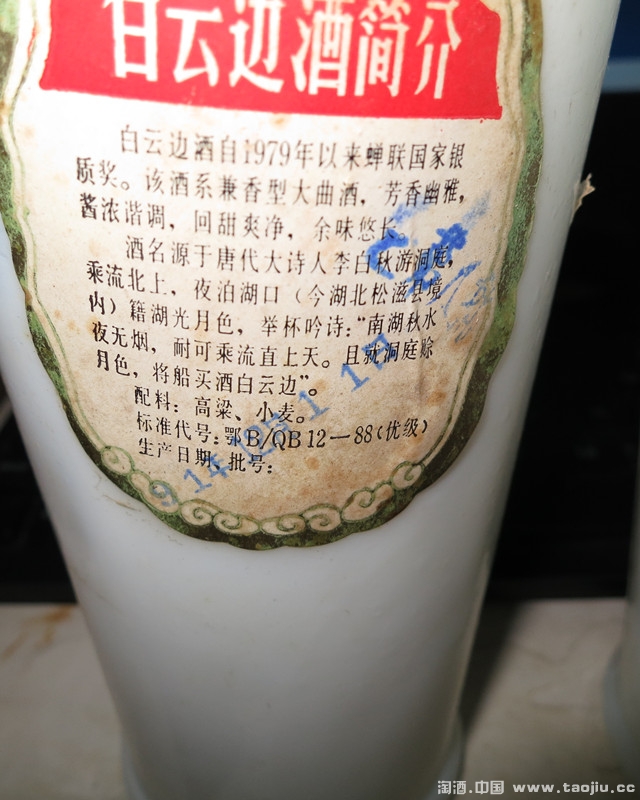 白云边酒简介
白云边酒自1979年以来蝉联国家银
质奖。该酒系兼香型大曲酒，芳香幽雅，
酱浓谐调，回甜爽净，余味悠长。
酒名源于唐代大诗人李白秋游洞庭，
乘流北上，夜泊湖口（今湖北松滋县境
内）籍湖光月色，举杯吟诗：“南湖秋水
夜无烟，耐可乘流直上天。且就洞庭赊
月色，将船买酒白云边”。
配料：高粱、小麦。
标准代号：鄂B/QB12—88（优级）
生产日期、批号：
淘酒.中国 www.taojiu.cc